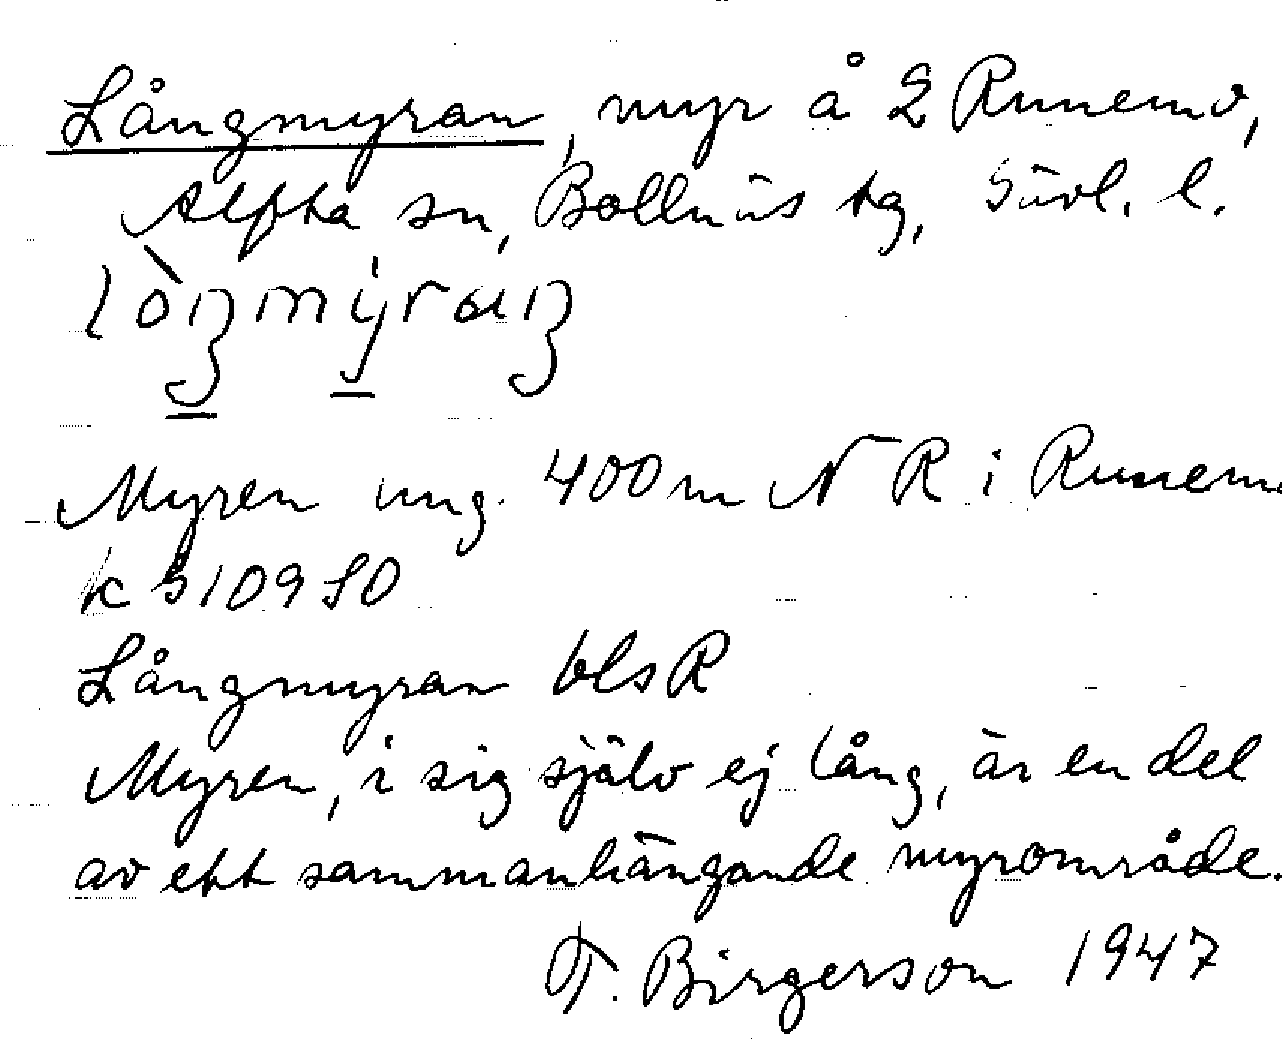 Långmyran, myr å 2 Runemo,
Alfta sn, Bollnäs tg, Gävl. l.
Myren ung. 400 m N R i Runemo
Långmyran bls R
Myren, i sig själv ej lång, är en del
av ett sammanhängande myrområde.
T. Birgerson 1947